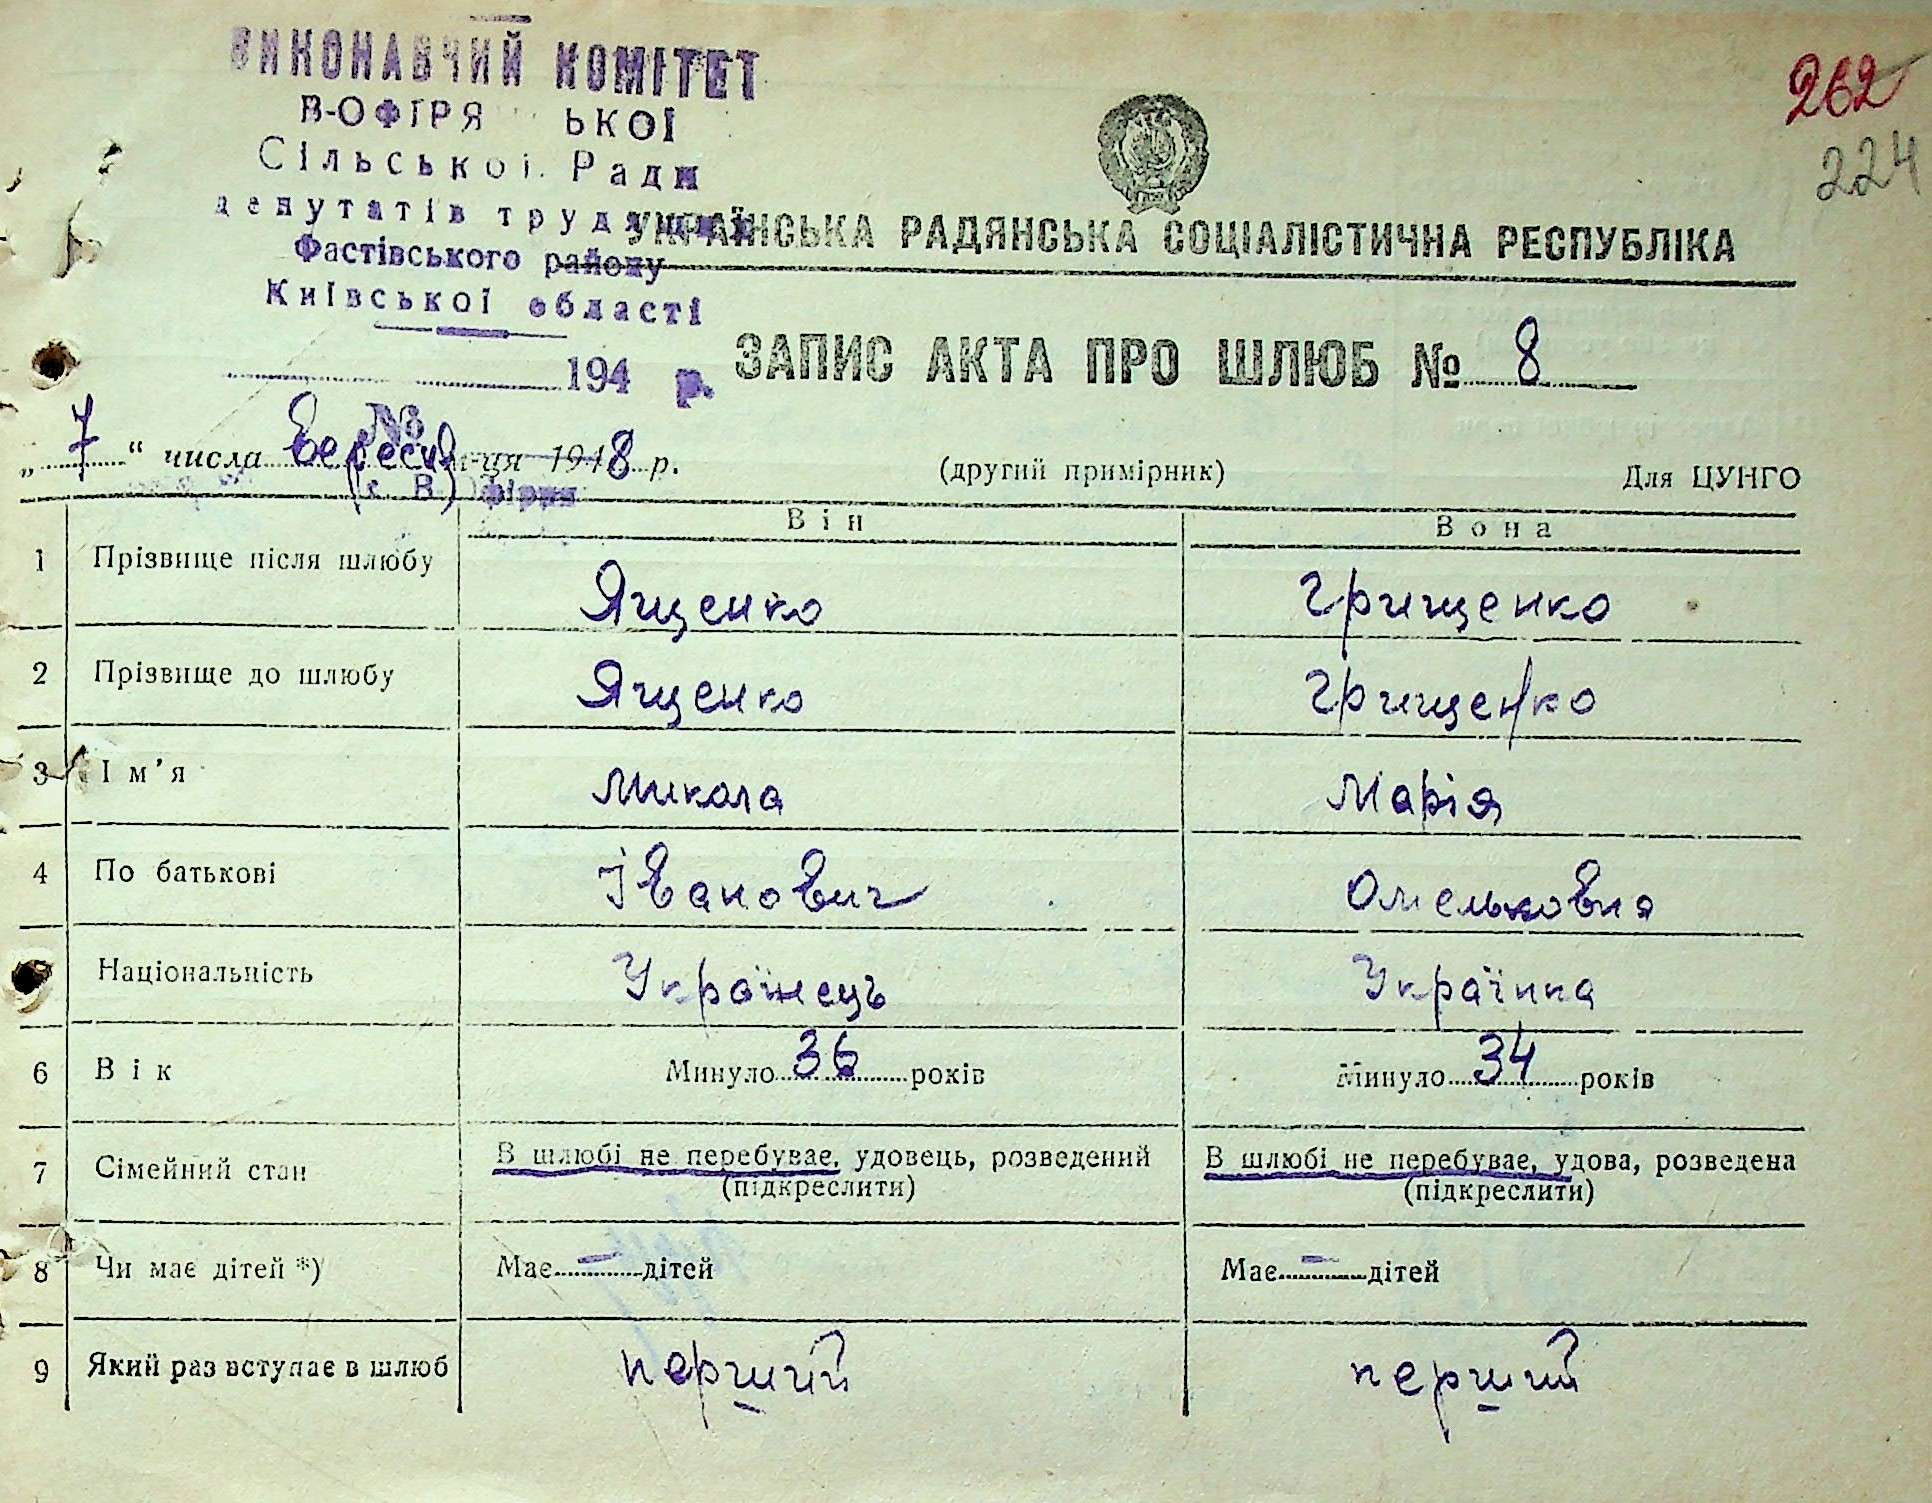 ВИКОНАВЧИЙ КОМІТЕТ
В-ОФІРЯ ЬКОЇ
Сільської Ради
депутатів трудящих
Фастівського району
Київської області
194 р.
№
262
224
УКРАЇНСЬКА РАДЯНСЬКА СОЦІАЛІСТИЧНА РЕСПУБЛІКА
ЗАПИС АКТА ПРО ШЛЮБ № 8
„ 7 “ числа Вересня м-ця 1948 р. (другий примірник) Для ЦУНГО
Він Вона
1 Прізвище після шлюбу Ященко Грищенко
2 Прізвище до шлюбу Ященко Грищенко
3 Ім’я Микола Марія
4 По батькові Іванович Омельковна
Національність Українець Українка
6 Вік Минуло 36 років Минуло 34 років
7 Сімейний стан В шлюбі не перебуває, удовець, розведений В шлюбі не перебуває, удова, розведена
(підкреслити) (підкреслити)
8 Чи має дітей *) Має – дітей Має – дітей
9 Який раз вступає в шлюб перший перший